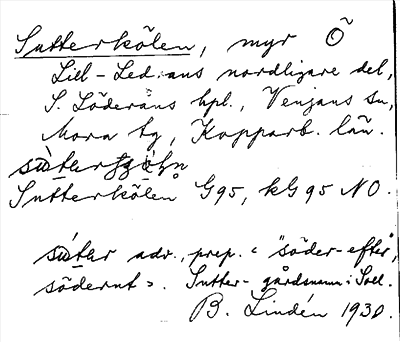 Sutterkölen, myr Ö
Lill-Ledåns nordligare del,
S. Löderåns hpl., Venjans sn,
Mora tg, Kopparb. län.
Sutterkölen G95, kG95 NO.
adv., prep. < "söder-efter",
södernt >. Sutter- gårdsnamn i Soll.
B. Lindén 1930.